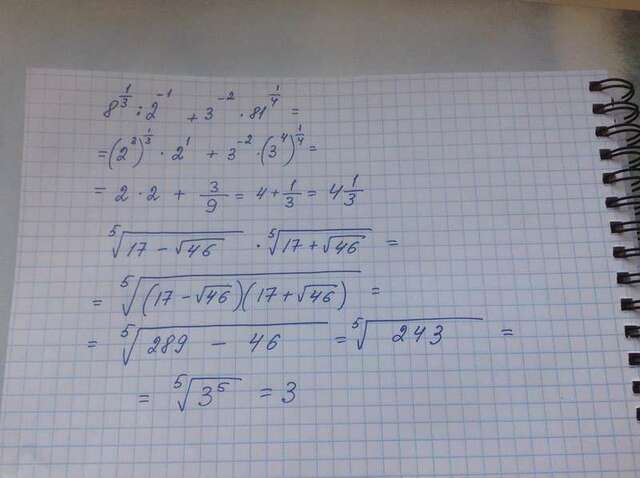 8^{\frac{1}{3}} : 2^{-1} + 3^{-2} · 81^{\frac{1}{4}} =
= (2^3)^{\frac{1}{3}} · 2^1 + 3^{-2} · (3^4)^{\frac{1}{4}} =
= 2 · 2 + \frac{3}{9} = 4 + \frac{1}{3} = 4\frac{1}{3}
\sqrt[5]{17 - \sqrt{46}} · \sqrt[5]{17 + \sqrt{46}} =
= \sqrt[5]{(17 - \sqrt{46})(17 + \sqrt{46})} =
= \sqrt[5]{289 - 46} = \sqrt[5]{243} =
= \sqrt[5]{3^5} = 3